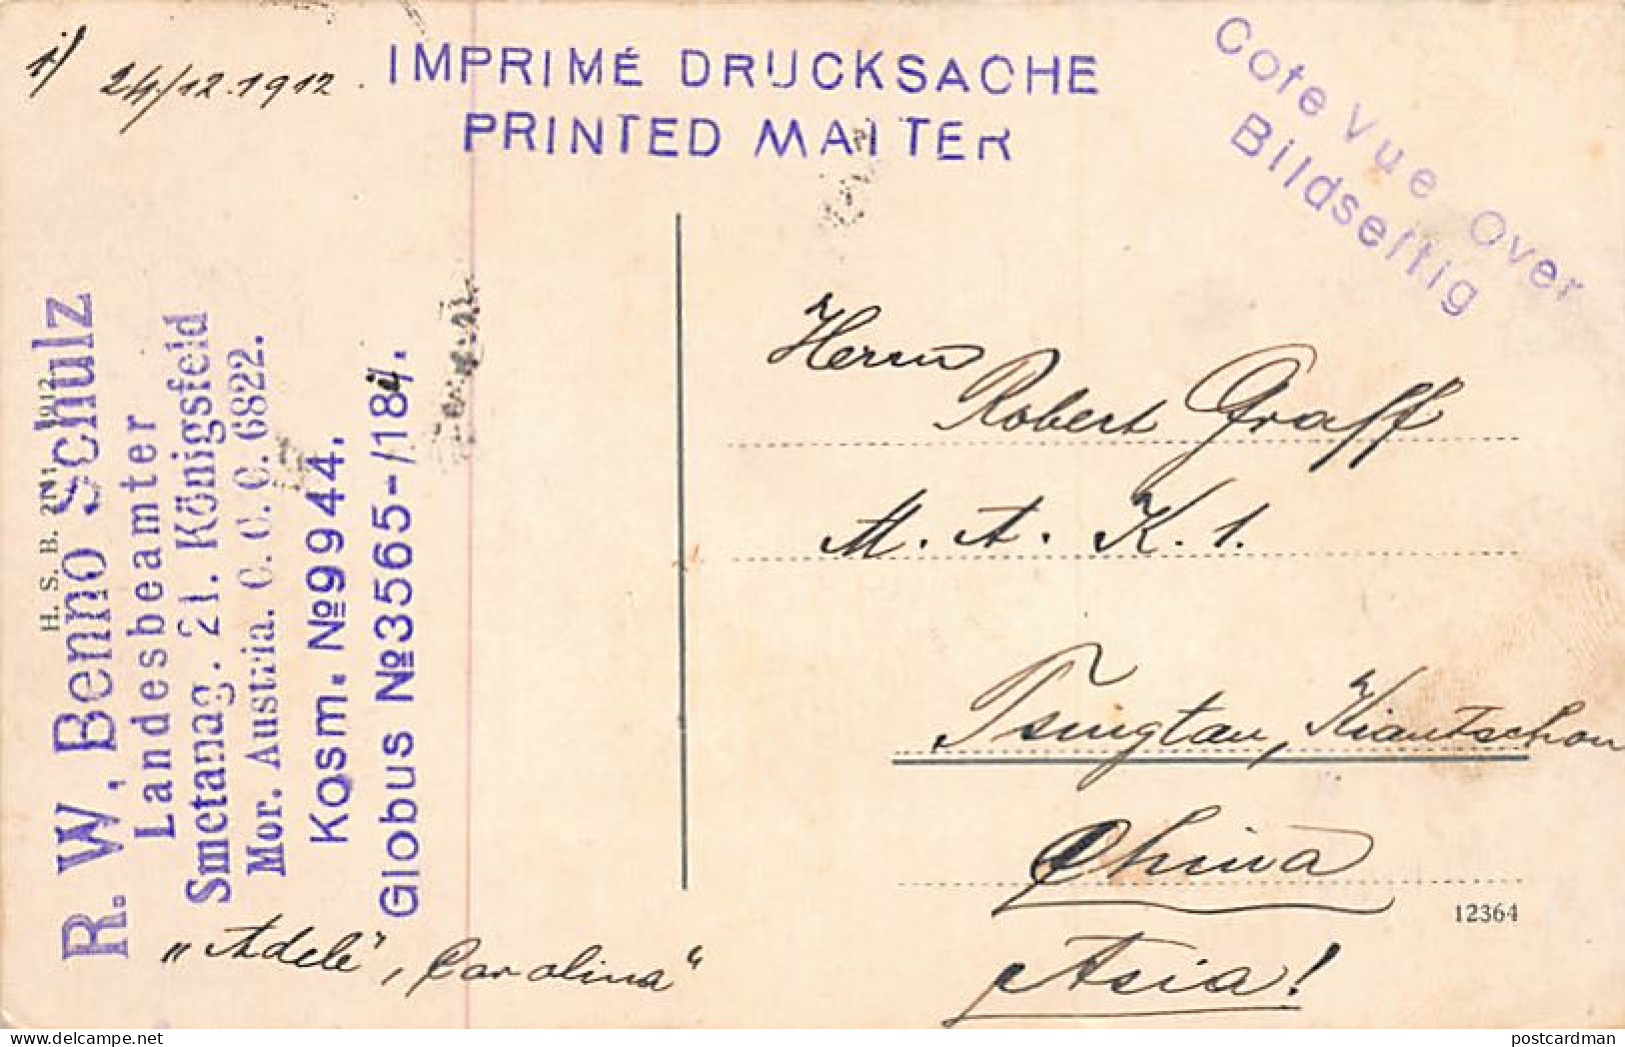 1) 24/12.1912.
IMPRIMÉ DRUCKSACHE
PRINTED MATTER
Cote vue Over
Bildseitig
R. W. Benno Schulz
Landesbeamter
Smetanag. 21. Königsfeld
Mor. Austria. C. C. C. 6822.
Kosm. №9944.
Globus №3565-/184.
H. S. B. 1912
Herrn
Robert Graff
M. A. K. 1.
Tsingtau, Kiautschou
China
Asia!
12364
„Adele", Carolina"
postcardman